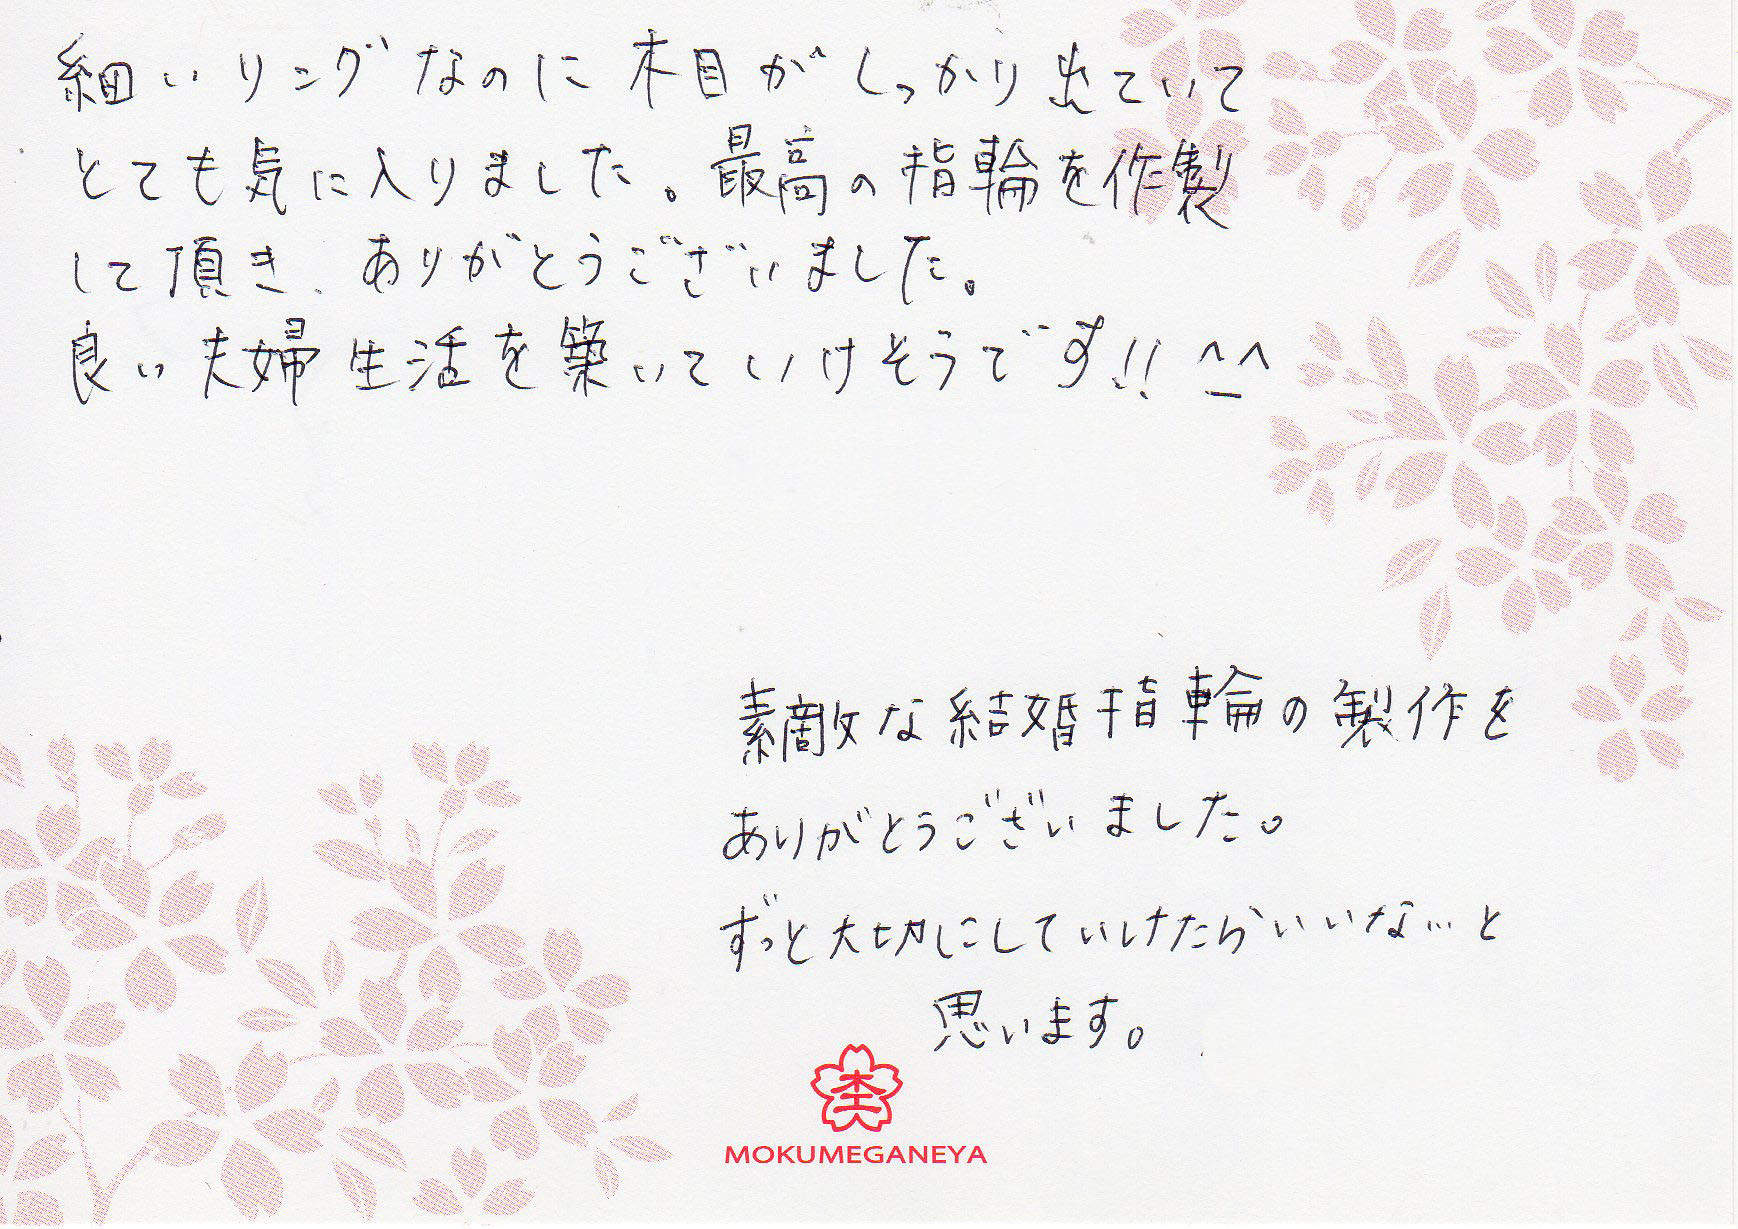 細いリングなのに木目がしっかり出ていて
とても気に入りました。最高の指輪を作製
して頂き、ありがとうございました。
良い夫婦生活を築いていけそうです!! ^_^
素敵な結婚指輪の製作を
ありがとうございました。
ずっと大切にしていけたらいいな…と
思います。
MOKUMEGANEYA